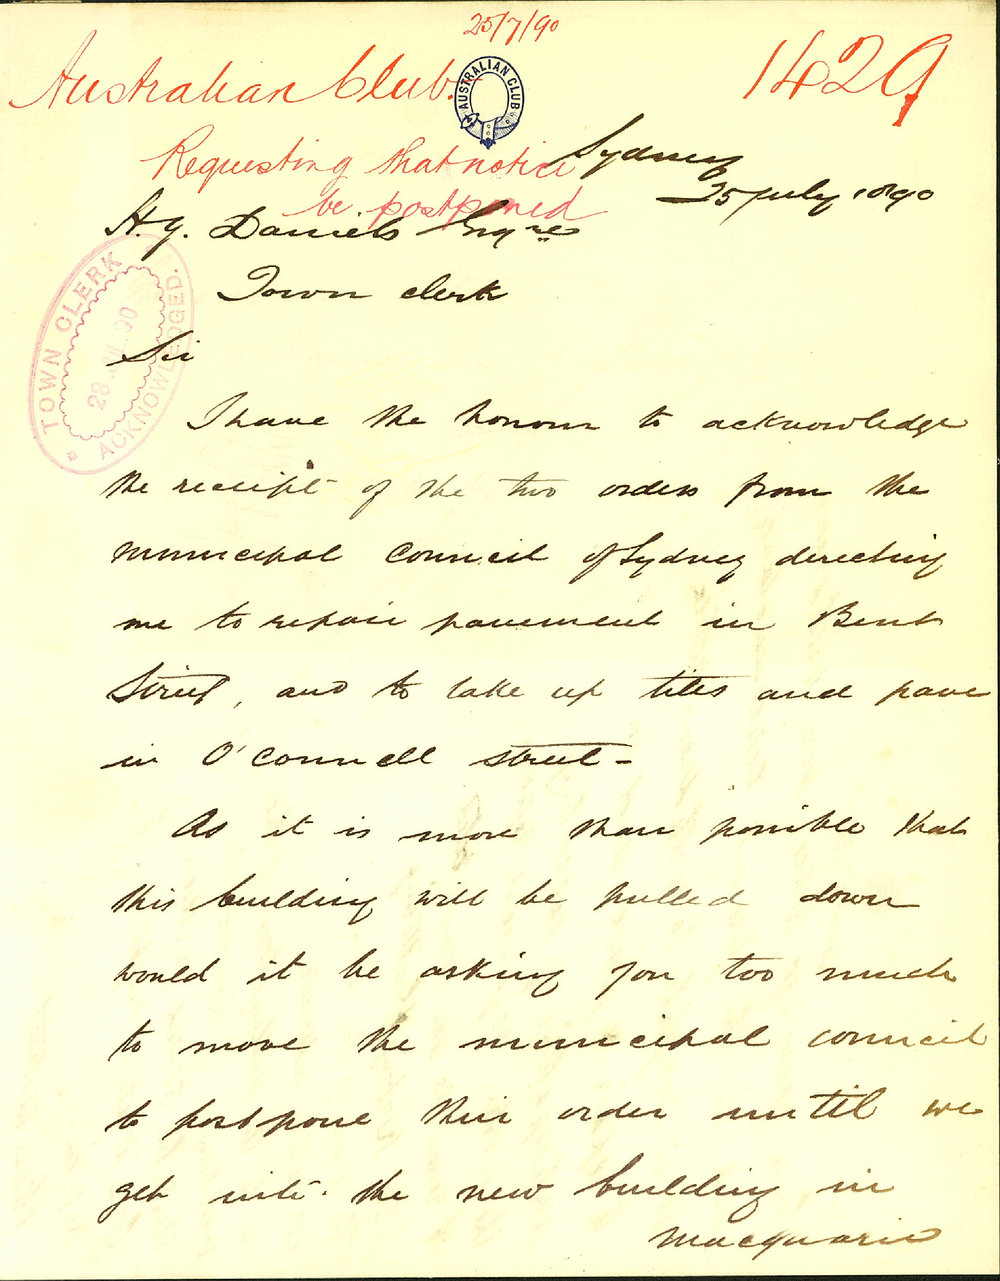 25/7/90
Australian Club.
AUSTRALIAN CLUB
1429
Requesting that notice
be postponed
Sydney
25 July 1890
H. G. Daniels Esqre
Town Clerk
TOWN CLERK
28 JUL. 90
ACKNOWLEDGED.
Sir
I have the honour to acknowledge
the receipt of the two orders from the
Municipal Council of Sydney directing
me to repair pavement in Bent
Street, and to take up tiles and pave
in O'Connell street -
As it is more than possible that
this building will be pulled down
would it be asking you too much
to move the municipal council
to postpone their order until we
get into the new building in
Macquarie